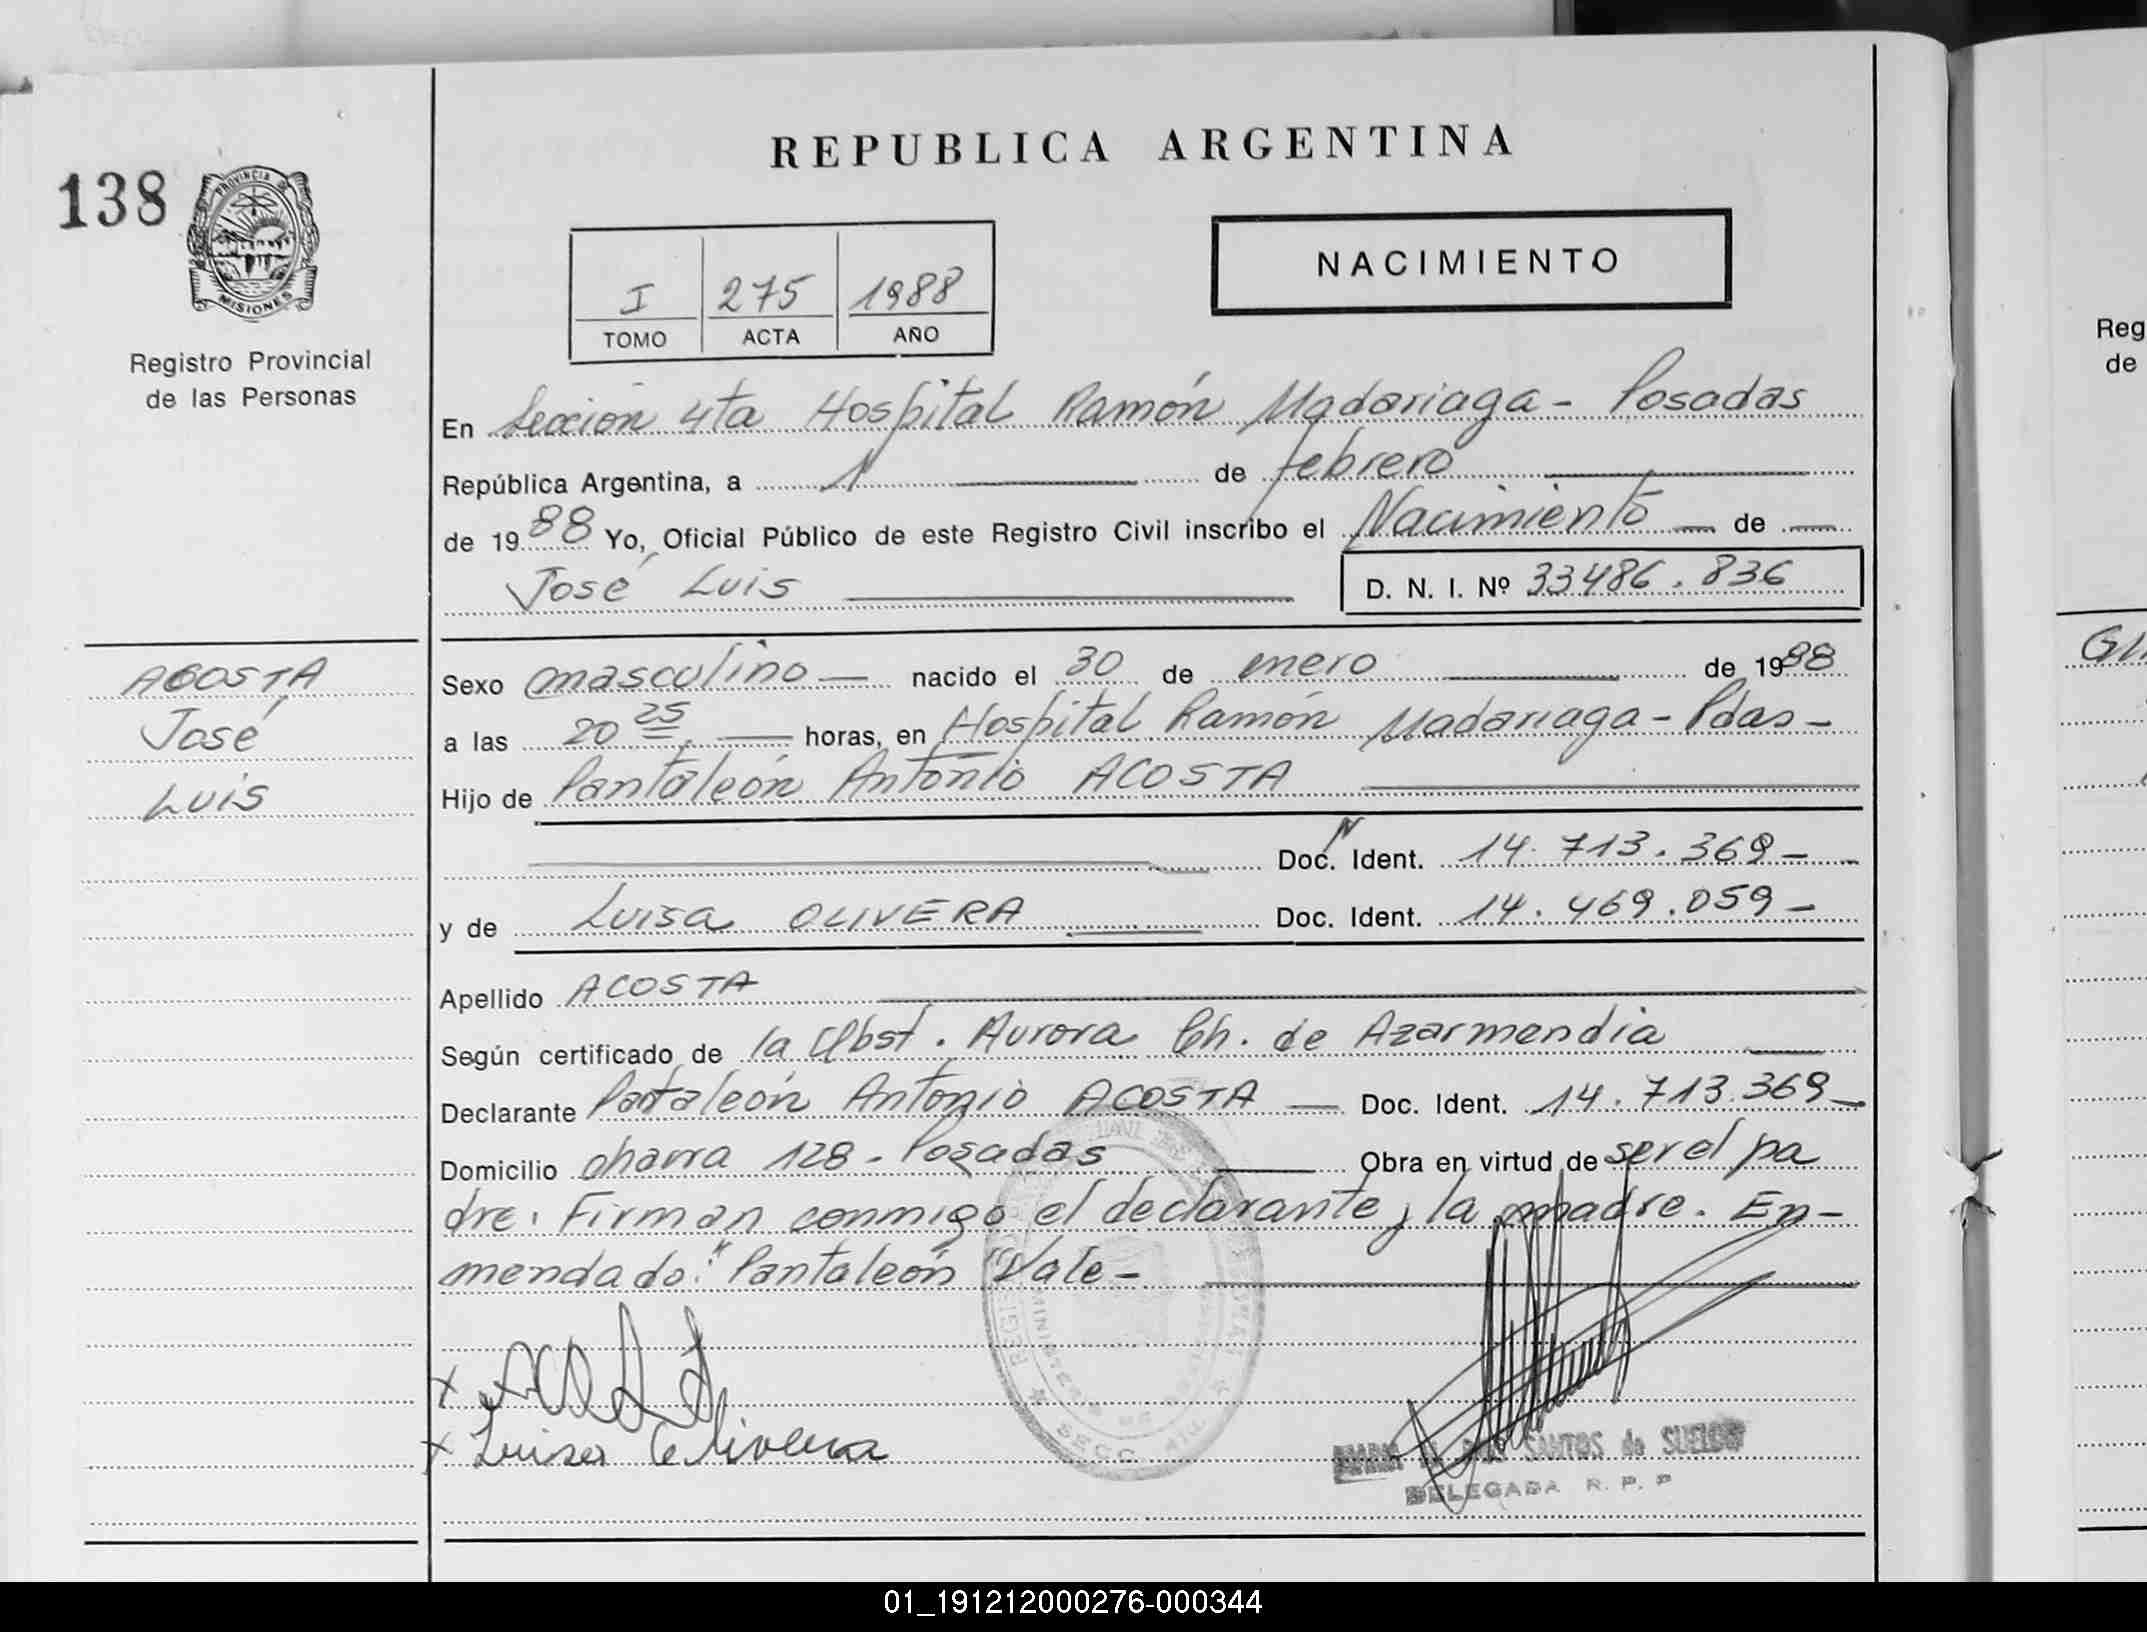 REPUBLICA ARGENTINA
138
PROVINCIA DE
MISIONES
Registro Provincial
de las Personas
I 275 1988
TOMO ACTA AÑO
NACIMIENTO
En Seccion 4ta Hospital Ramón Madariaga - Posadas
República Argentina, a 1 de febrero
de 1988 Yo, Oficial Público de este Registro Civil inscribo el Nacimiento de
José Luis D. N. I. Nº 33486.836
ACOSTA
José
Luis
Sexo masculino nacido el 30 de enero de 1988
a las 20 25 horas, en Hospital Ramón Madariaga - Pdas -
Hijo de Pantaleón Antonio ACOSTA
Doc. Ident. 14.713.369 -
y de Luisa OLIVERA Doc. Ident. 14.469.059 -
Apellido ACOSTA
Según certificado de la Obst. Aurora Ch. de Azarmendia
Declarante Pantaleón Antonio ACOSTA Doc. Ident. 14.713.369 -
Domicilio 128 - Posadas Obra en virtud de ser el pa
dre. Firman conmigo el declarante y la madre. En-
mendado: "Pantaleón" Vale -
Luisa Olivera
SANTOS de
DELEGADA R. P. P
Reg
de
01_191212000276-000344